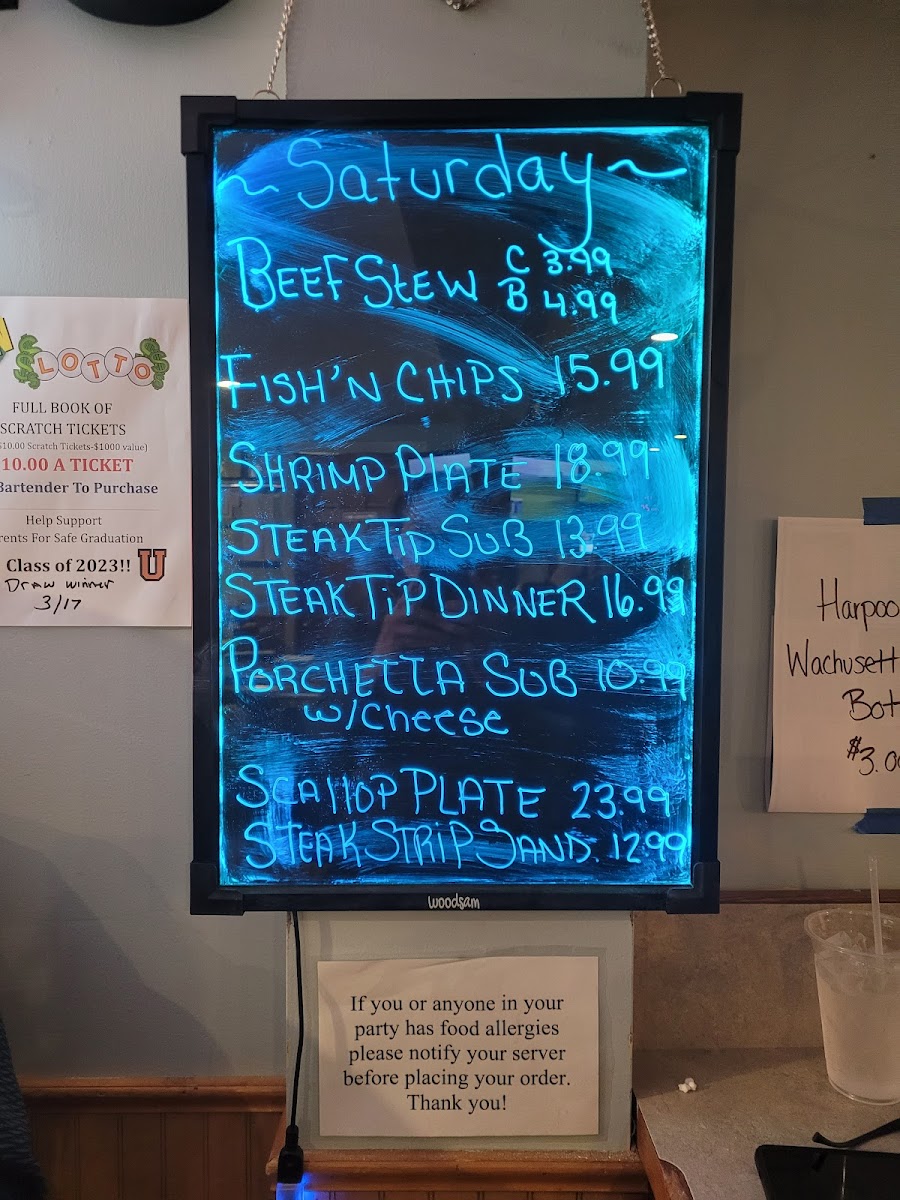 ~ Saturday ~
BEEF STEW C 3.99
B 4.99
FISH 'N CHIPS 15.99
SHRIMP PLATE 18.99
STEAK TIP SUB 13.99
STEAK TIP DINNER 16.99
PORCHETTA SUB 10.99
w/cheese
SCALLOP PLATE 23.99
STEAK STRIP SAND. 12.99
woodsam
If you or anyone in your
party has food allergies
please notify your server
before placing your order.
Thank you!
LOTTO
FULL BOOK OF
SCRATCH TICKETS
$10.00 Scratch Tickets-$1000 value)
10.00 A TICKET
Bartender To Purchase
Help Support
For Safe Graduation
Class of 2023!! U
Draw winner
3/17
Wachusett
$3.0